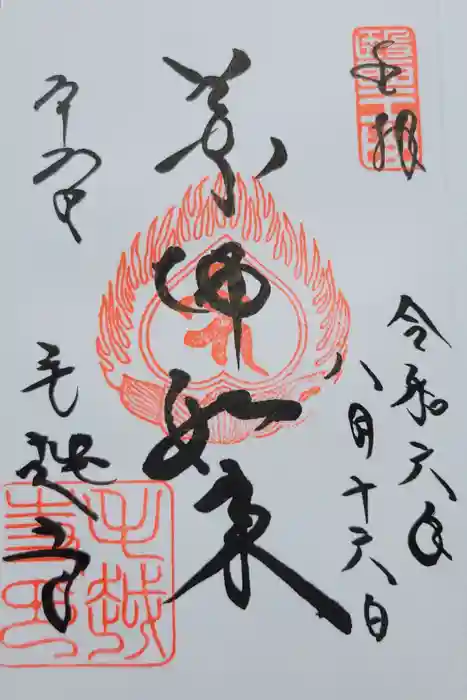 奉拝
令和六年
八月十六日
薬師如来
平泉
毛越寺
醫王山
毛越寺印